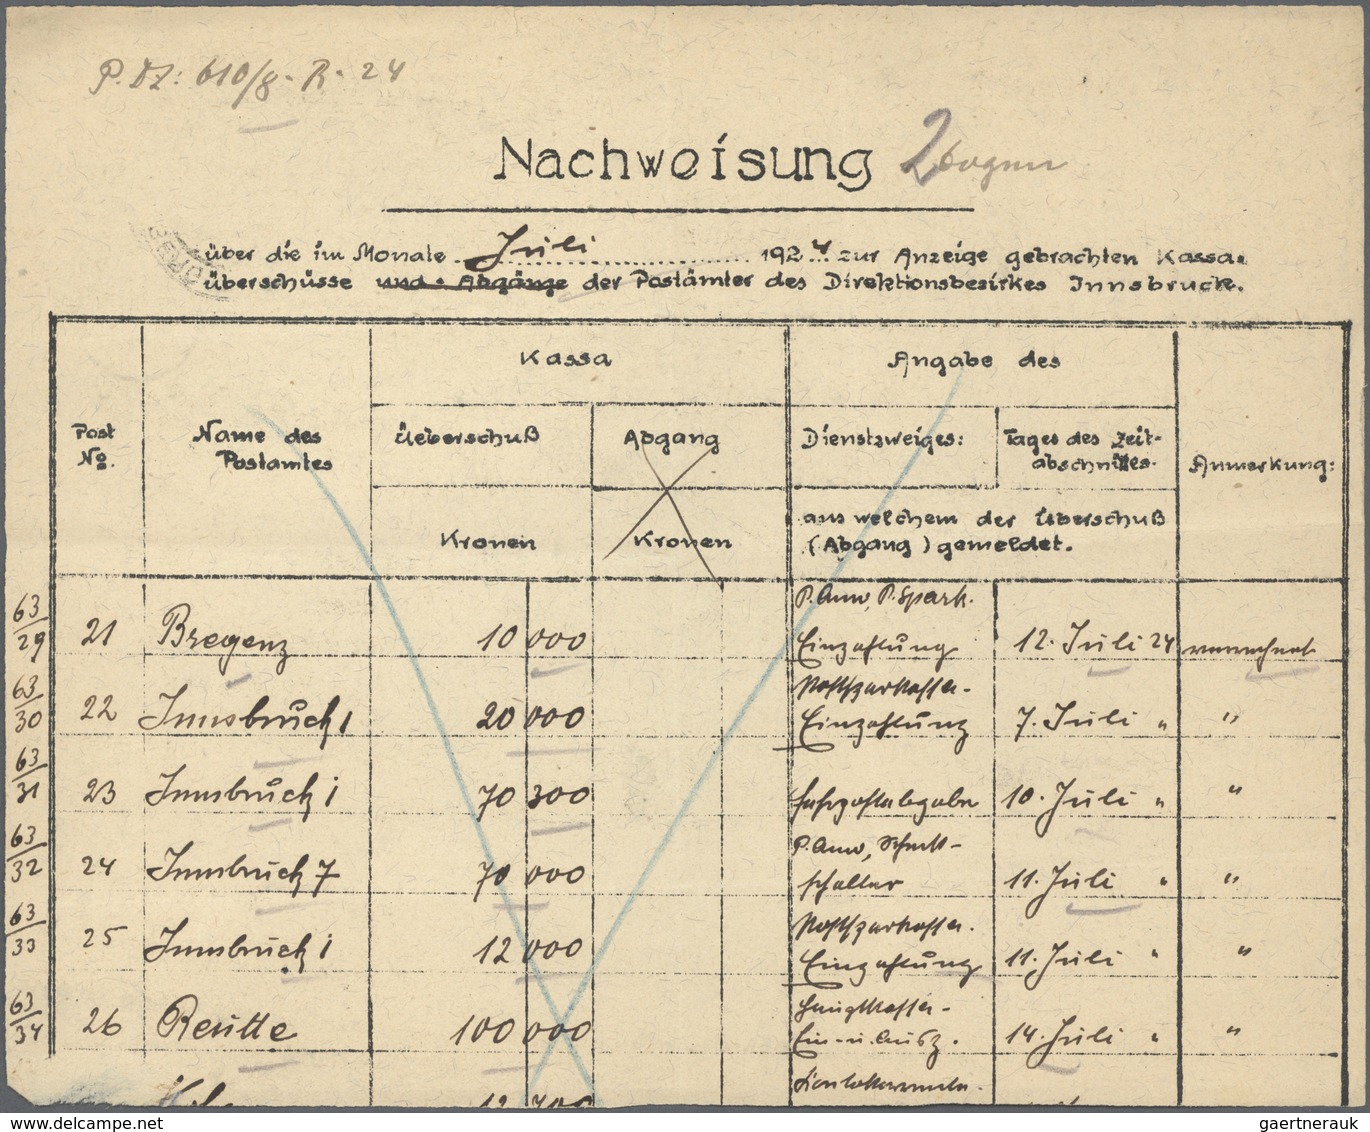 P. DZ: 610/8 - R - 24
Nachweisung 2 bogen
über die im Monate Juli 1924 zur Anzeige gebrachten Kassa-
überschüsse und Abgänge der Postämter des Direktionsbezirkes Innsbruck.
Kassa Angabe des
Post No. Name des Postamtes Überschuß Abgang Dienstzweiges: Tages des Zeit-
abschnittes. Anmerkung:
Kronen Kronen aus welchem der Überschuß
(Abgang) gemeldet.
P. Anw, P. Spark.
63/29 21 Bregenz 10 000 Einzahlung 12. Juli 24 verrechnet
Postsparkassa-
63/30 22 Innsbruck 1 20 000 Einzahlung 7. Juli " "
63/31 23 Innsbruck 1 70 300 10. Juli " "
P. Anw,
63/32 24 Innsbruck 7 70 000 schalter 11. Juli " "
Postsparkassa.
63/33 25 Innsbruck 1 12 000 Einzahlung 11. Juli " "
Hauptkassa-
63/34 26 Reutte 100 000 Ein- u. Ausz. 14. Juli " "
12 700
gaertnerauk